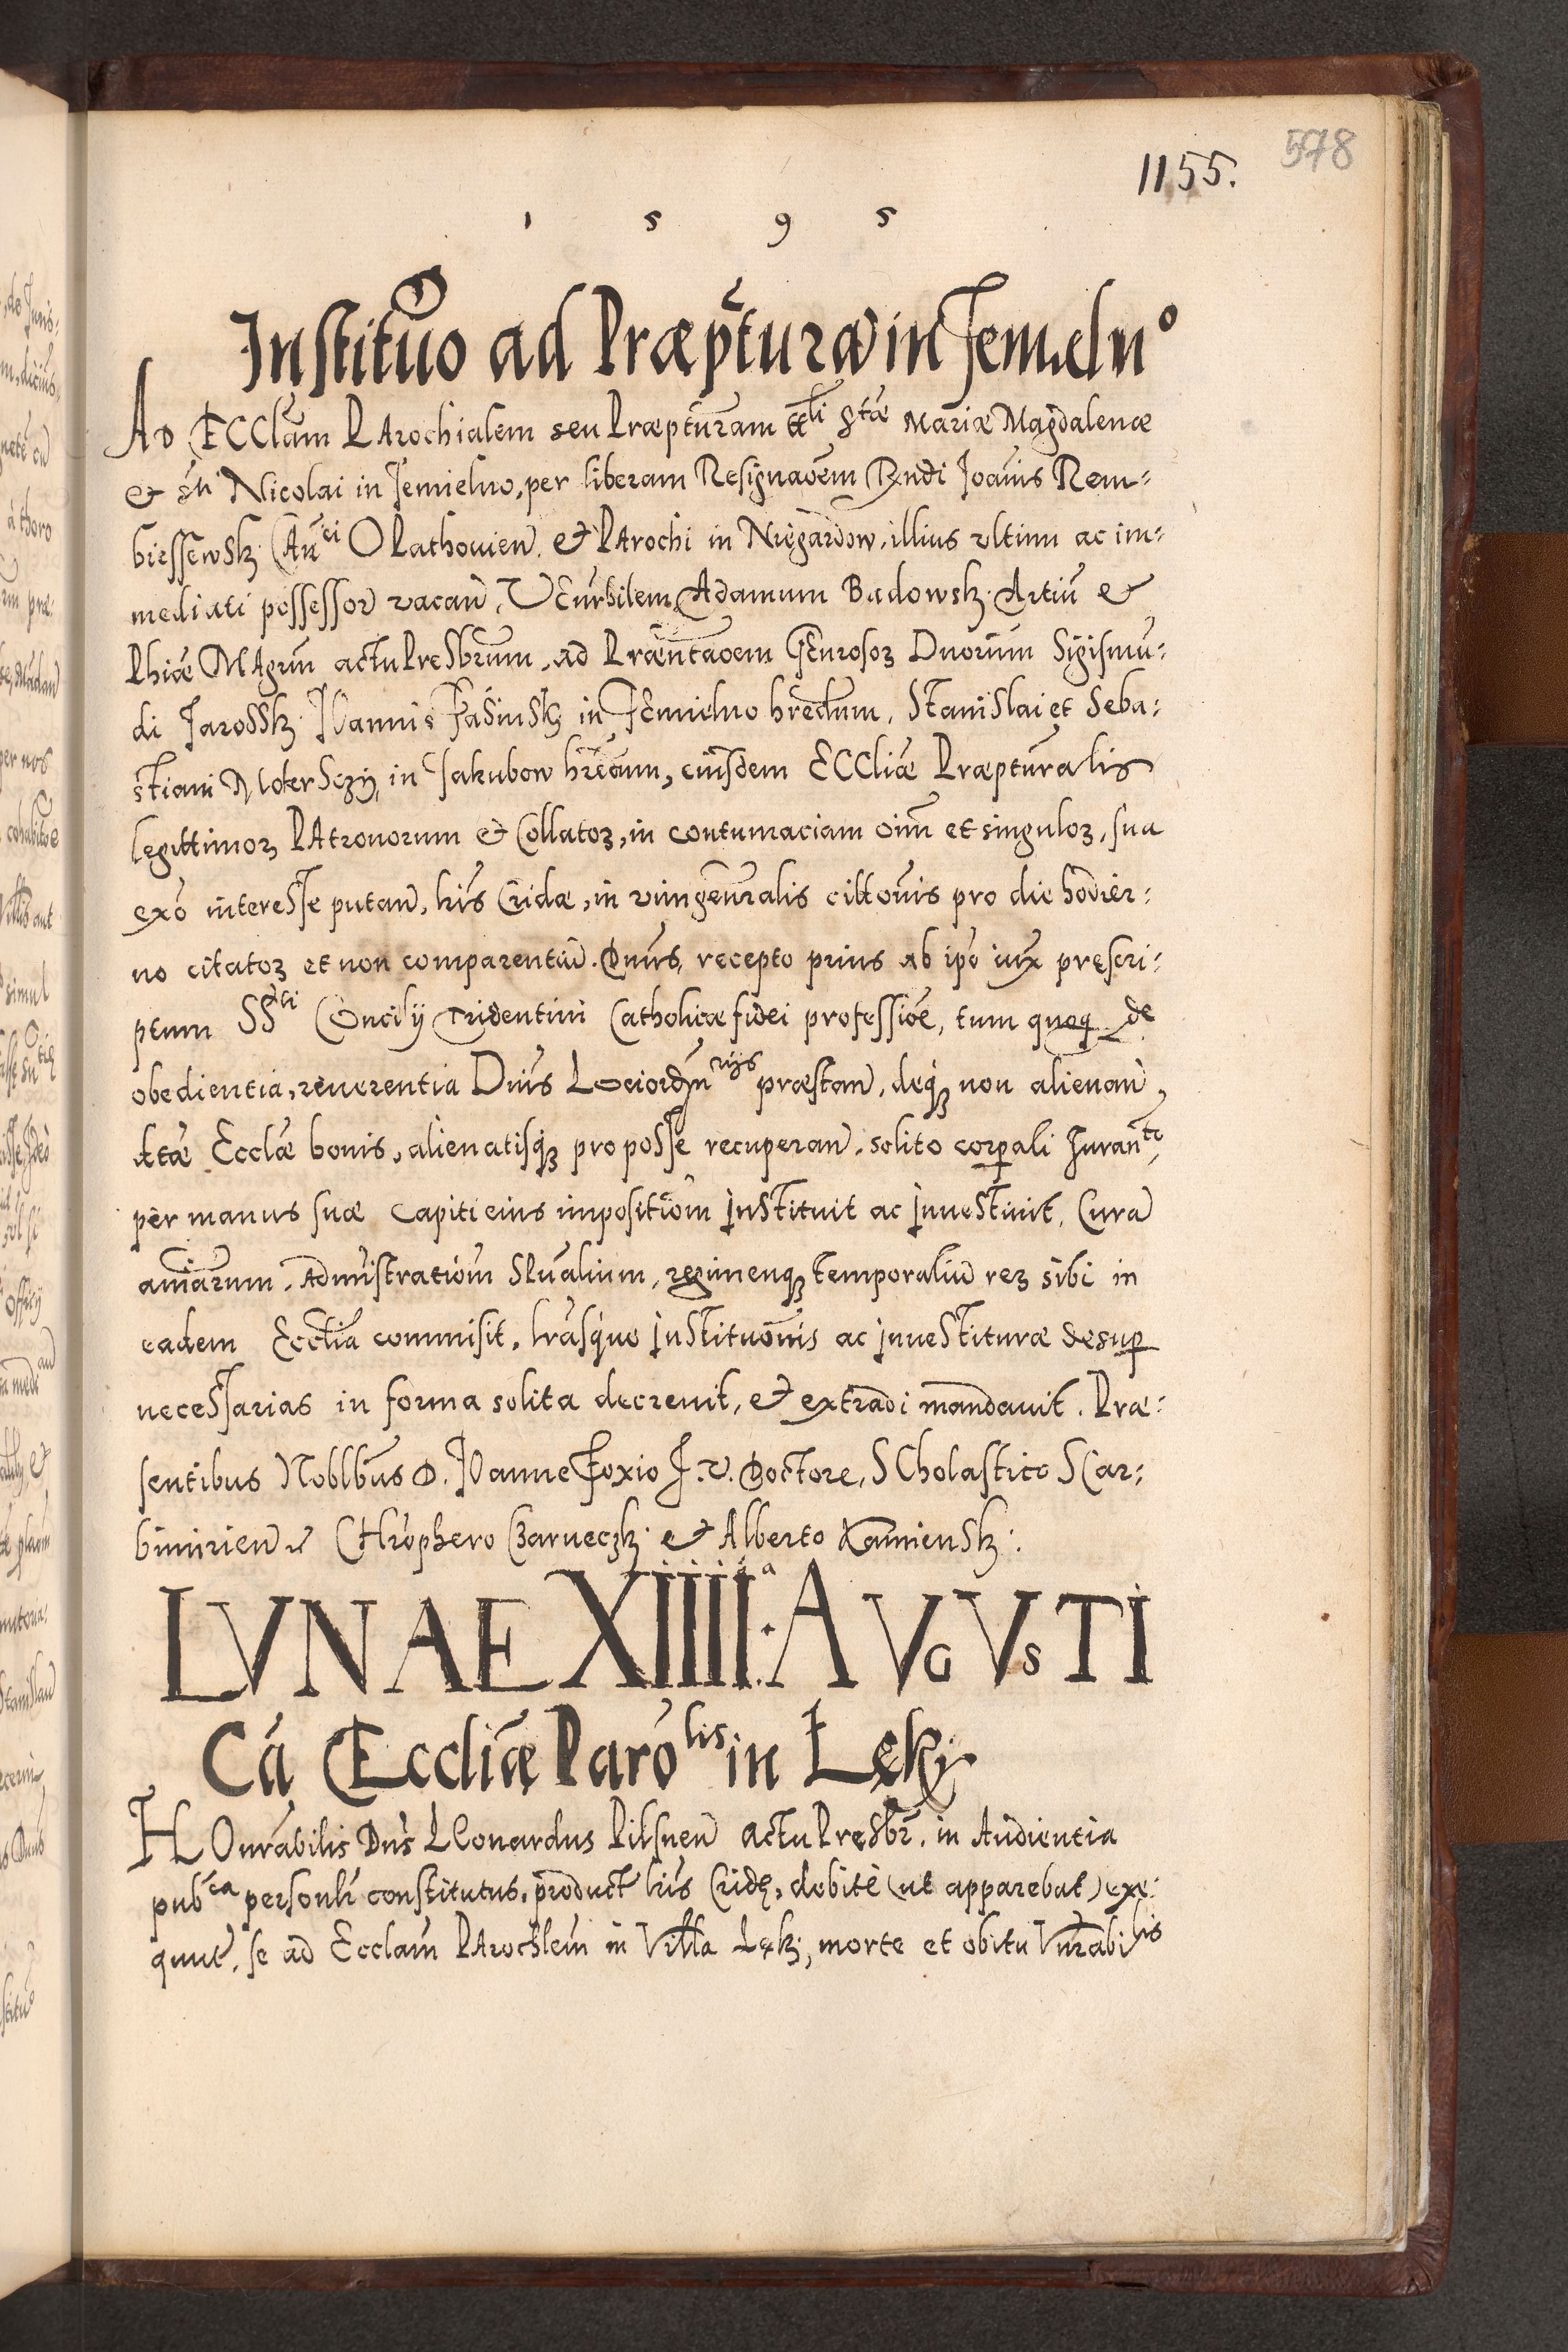 578
1155.
1 5 9 5
Instituo ad Præpturã in Jemieln°
Ad ECClam PArochialem seu Præpturam tt^li S^tæ Mariæ Magdalenæ
et Sti Nicolai in Jemielno, per liberam Resignaoem Rndi Joanis Rem-
biessewsk. Can^ci OPathouien. et PArochi in Niegardow, illius vltimi ac im-
mediati possessor vacan, VEnrbilem Adamum Badowsk. Artiū et
Phiæ MAgrm actu PresBrum, ad Præntaoem GEnrosoꝝ Dnorum Sigismū-
di Jarossk. JOannis Jasinsk in JEmielno hredum, Stanislai et Seba-
stiani Mokersczy, in Jakubow hredum, eiusdem ECCliæ Præpturalis
legittimoꝝ PAtronorum et Collatoꝝ, in contumaciam oim et singuloꝝ, sua
exo interesse putan, lris Cridæ, in vim genralis cittonis pro die hodier-
no citatoꝝ et non comparentiū. Dnus, recepto prius ab ipo iux prescri-
ptum SS^cti Concilij Tridentini Catholicæ fidei professioe, tum quoq de
obedientia, reuerentia Dnis Lociordin^rijs præstan, deqꝫ non alienan,
dtæ Ecclæ bonis, alienatisqꝫ pro posse recuperan, solito corpali Juran^to,
per manus suæ capiti eius impositiom Instituit ac Inuestiuit, Curā
aniarum, Admistratiom SPualium, regimenqꝫ temporaliū reꝝ sibi in
eadem Ecclia commisit, lrasque Instituonis ac Inuestituræ desup
necessarias in forma solita decreuit, et extradi mandauit. Præ-
sentibus Noblbus D. JOanne Foxio J. V. Doctore, SCholastico SCar-
bimirien et CHrophero Czarneczk. et Alberto Kamiensk.
LVNAE XIIII^a. AVGVSTI
Cā Eccliæ Paro^lis in Lęki
HOnrabilis Dns LEonardus Pilsnen actu PresBr, in Audientia
pub^ca personlr constitutus, product lris Cridę, debitè (ut apparebat) exe-
qunt, se ad Ecclam PArochlem in Villa Lęki, morte et obitu Vnrabi^lis